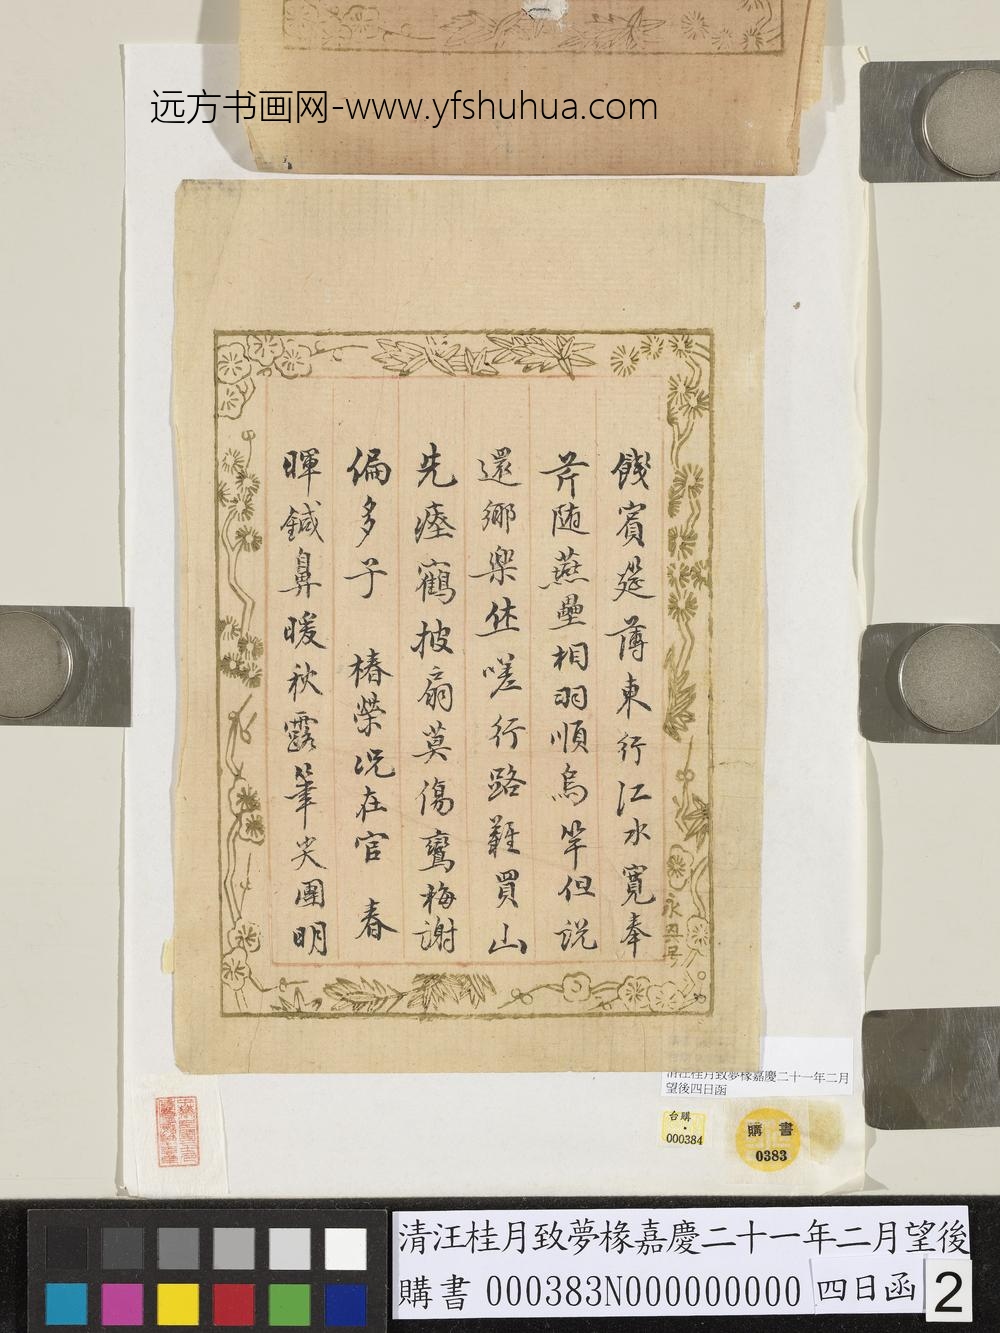 远方书画网-www.yfshuhua.com
餞賓筵薄東行江水寬奉
芹随燕壘相羽順烏竿但説
還鄉樂休嗟行路難買山
先瘞鶴披扇莫傷鸞梅謝
偏多子 椿榮况在官 春
暉鍼鼻暖秋露筆尖團明
清汪桂月致夢椽嘉慶二十一年二月
望後四日函
台購
000384
購書
0383
清汪桂月致夢椽嘉慶二十一年二月望後
購書 000383N000000000 四日函 2